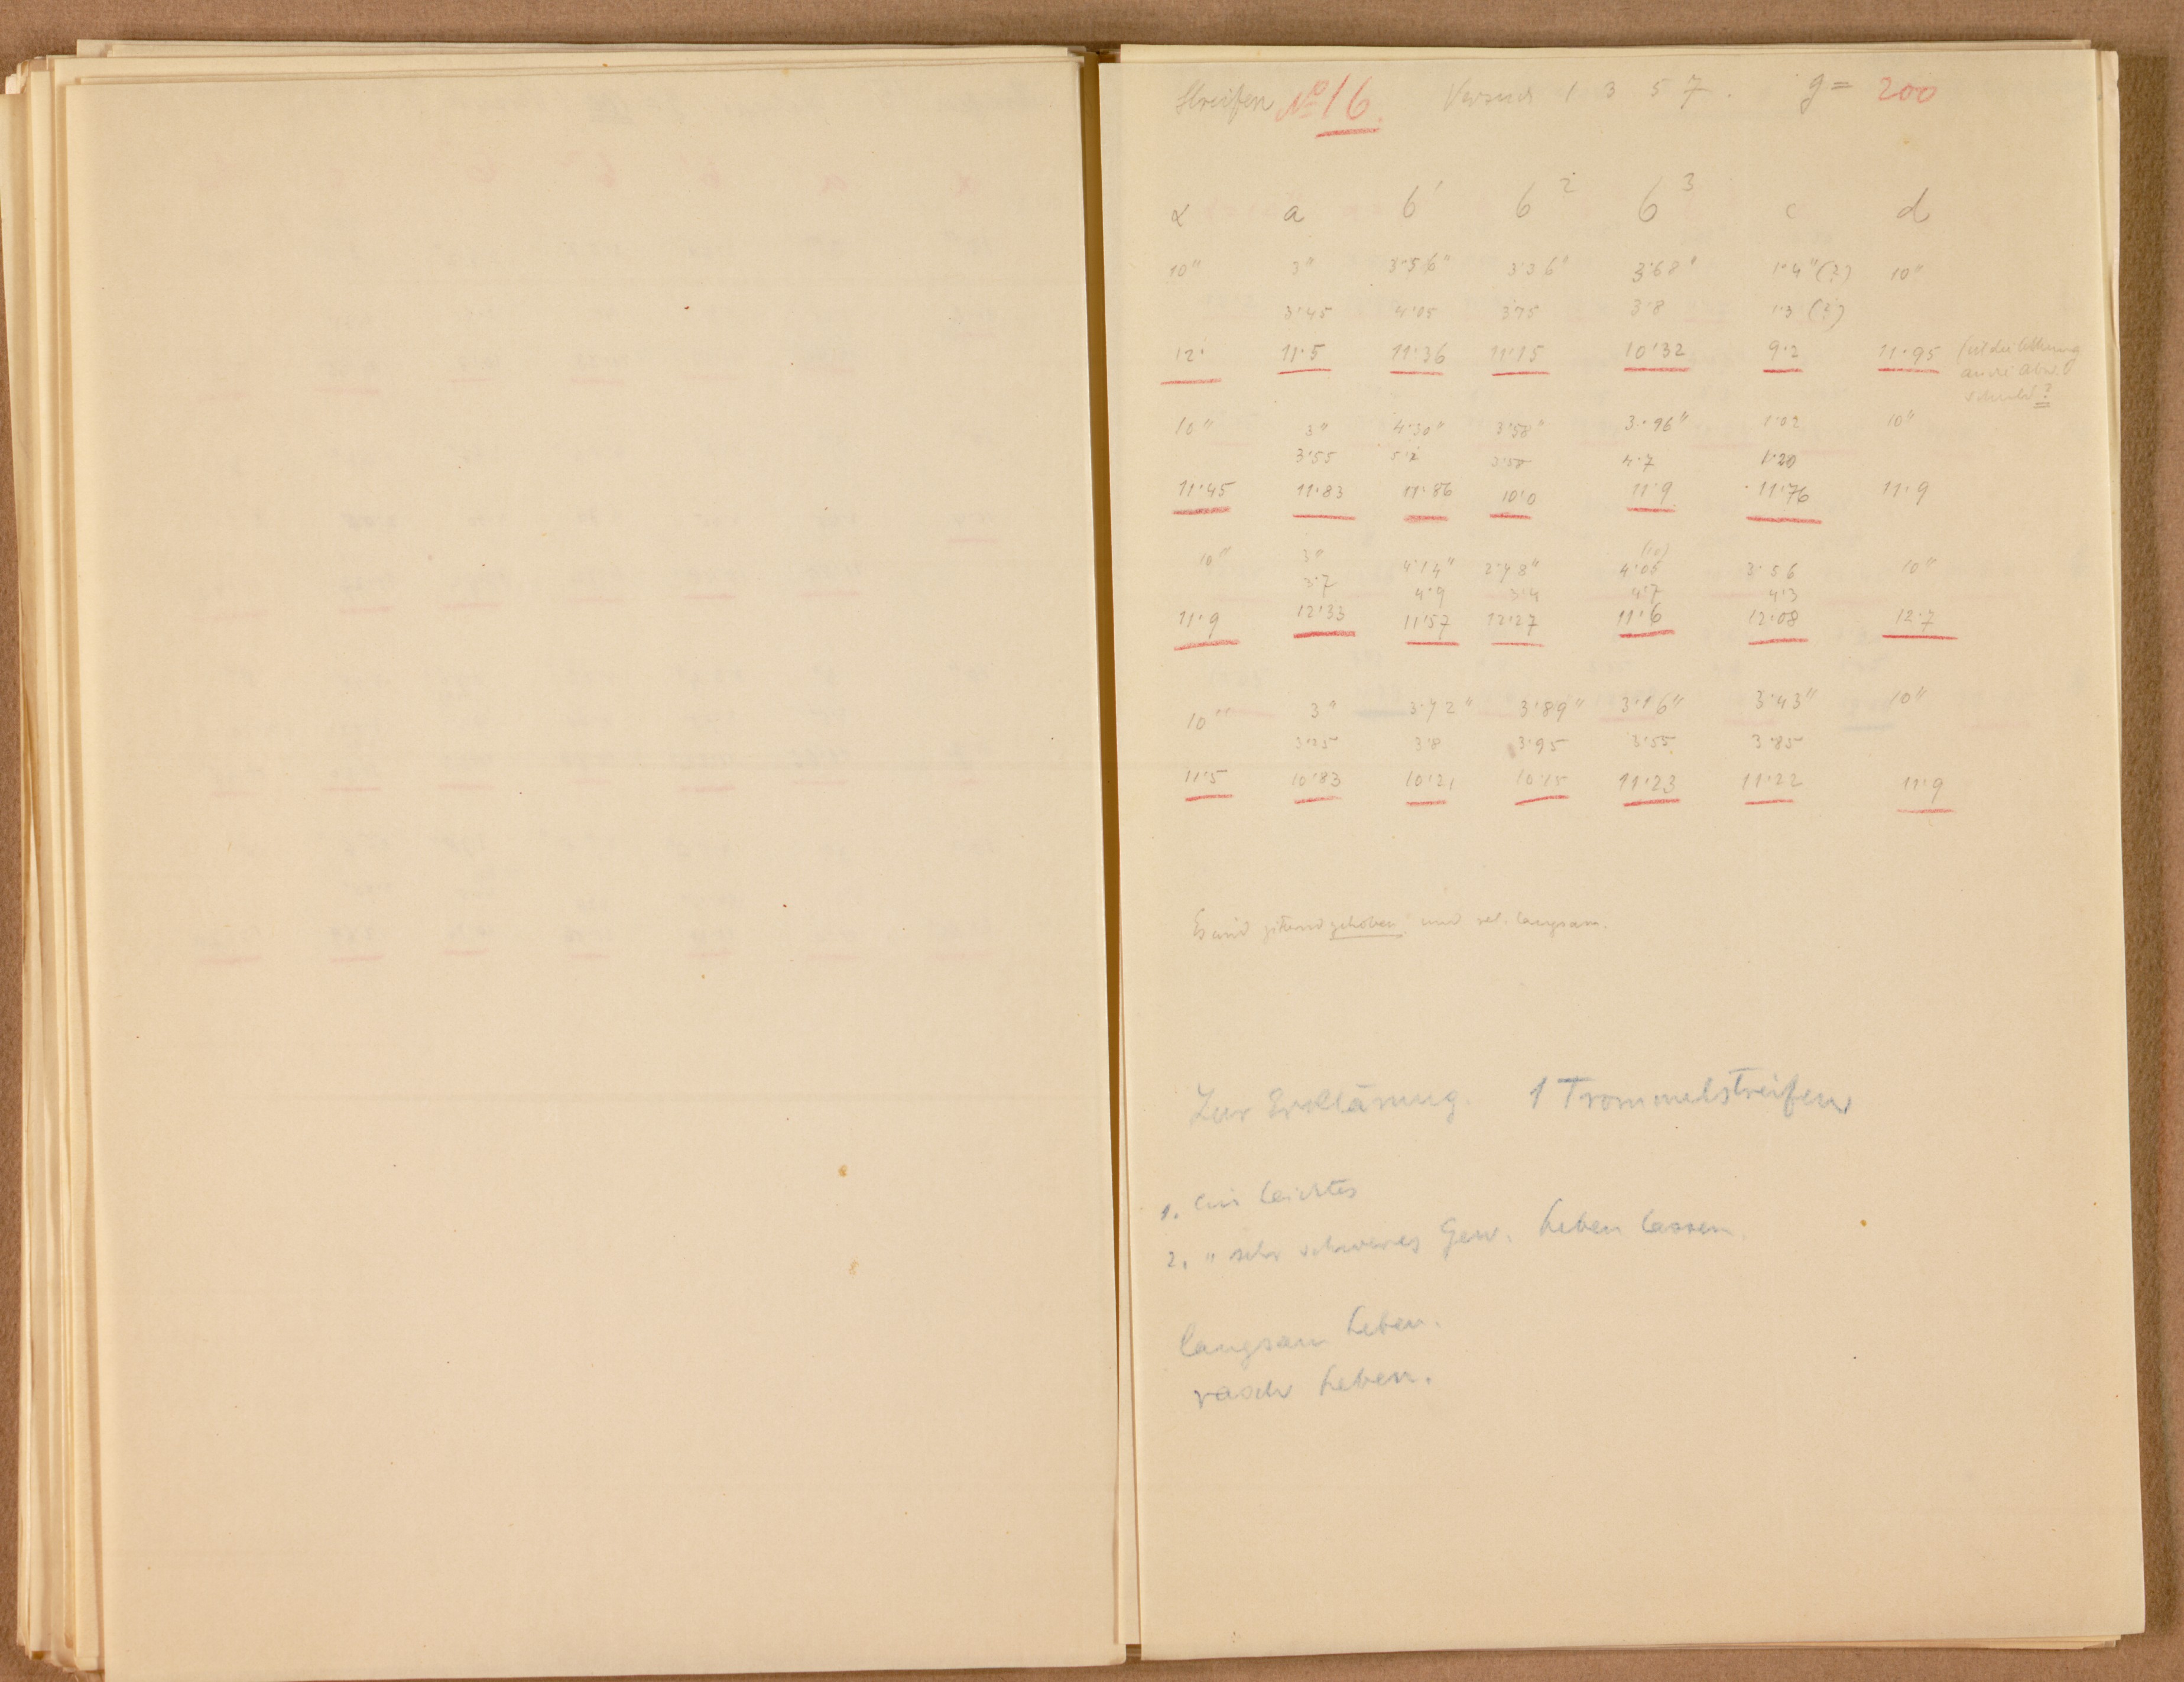 Streifen No 16. Versuch 1 3 5 7. g = 200
α a b¹ b² b³ c d
10" 3" 3·56" 3·36" 3·68" 1·4" (?) 10"
3·45 4·05 3·75 3·8 1·3 (?)
12· 11·5 11·36 11·15 10·32 9·2 11·95
schuld?
10" 3" 4·30" 3·58" 3·96" 1·02 10"
3·55 5·1 3·58 4·7 1·20
11·45 11·83 11·86 10·0 11·9 11·76 11·9
(10)
10" 3" 4·14" 2·78" 4·05 3·56 10"
3·7 4·9 3·4 4·7 4·3
11·9 12·33 11·57 12·27 11·6 12·08 12·7
10" 3" 3·72" 3·89" 3·16" 3·43" 10"
3·25 3·8 3·95 3·55 3·85
11·5 10·83 10·21 10·15 11·23 11·22 11·9
Es wird zitternd gehoben und rel. langsam.
Zur Erklärung. 1 Trommelstreifen
1. ein leichtes
2. " sehr schweres Gew. heben lassen
langsam heben.
rasch heben.